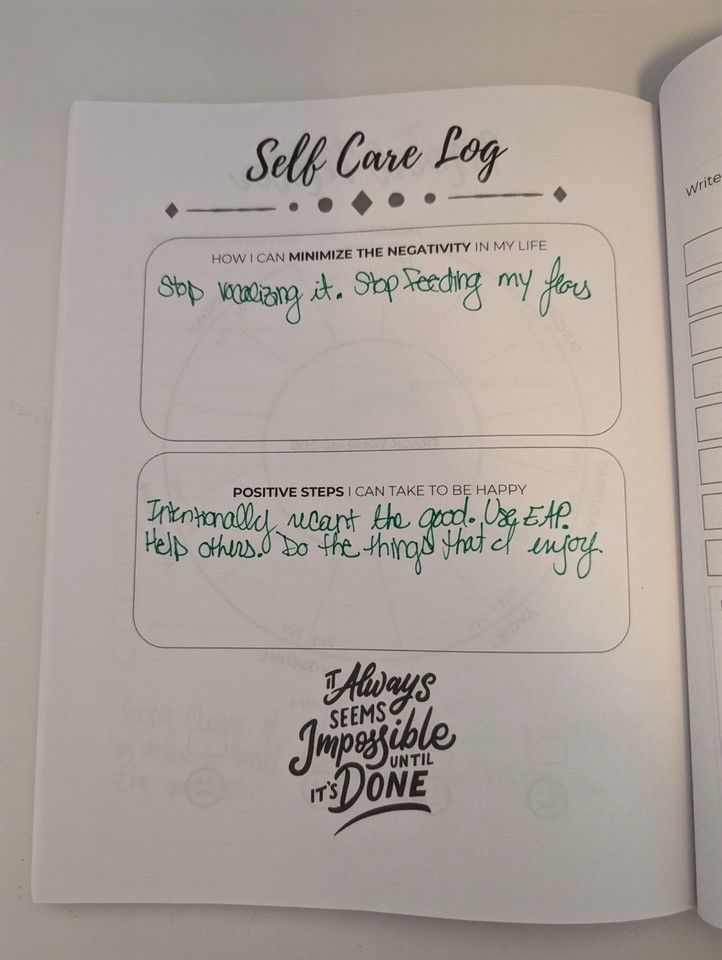 Self Care Log
HOW I CAN MINIMIZE THE NEGATIVITY IN MY LIFE
Stop vocalizing it. Stop feeding my fears
POSITIVE STEPS I CAN TAKE TO BE HAPPY
Intentionally recant the good. Use EAP.
Help others. Do the things that I enjoy.
IT Always
SEEMS
Impossible
UNTIL
IT'S DONE
Write